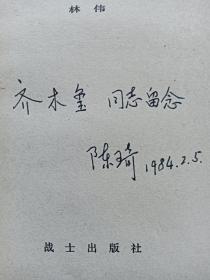 林伟
齐木玺 同志留念
陈琦 1984.2.5.
战士出版社